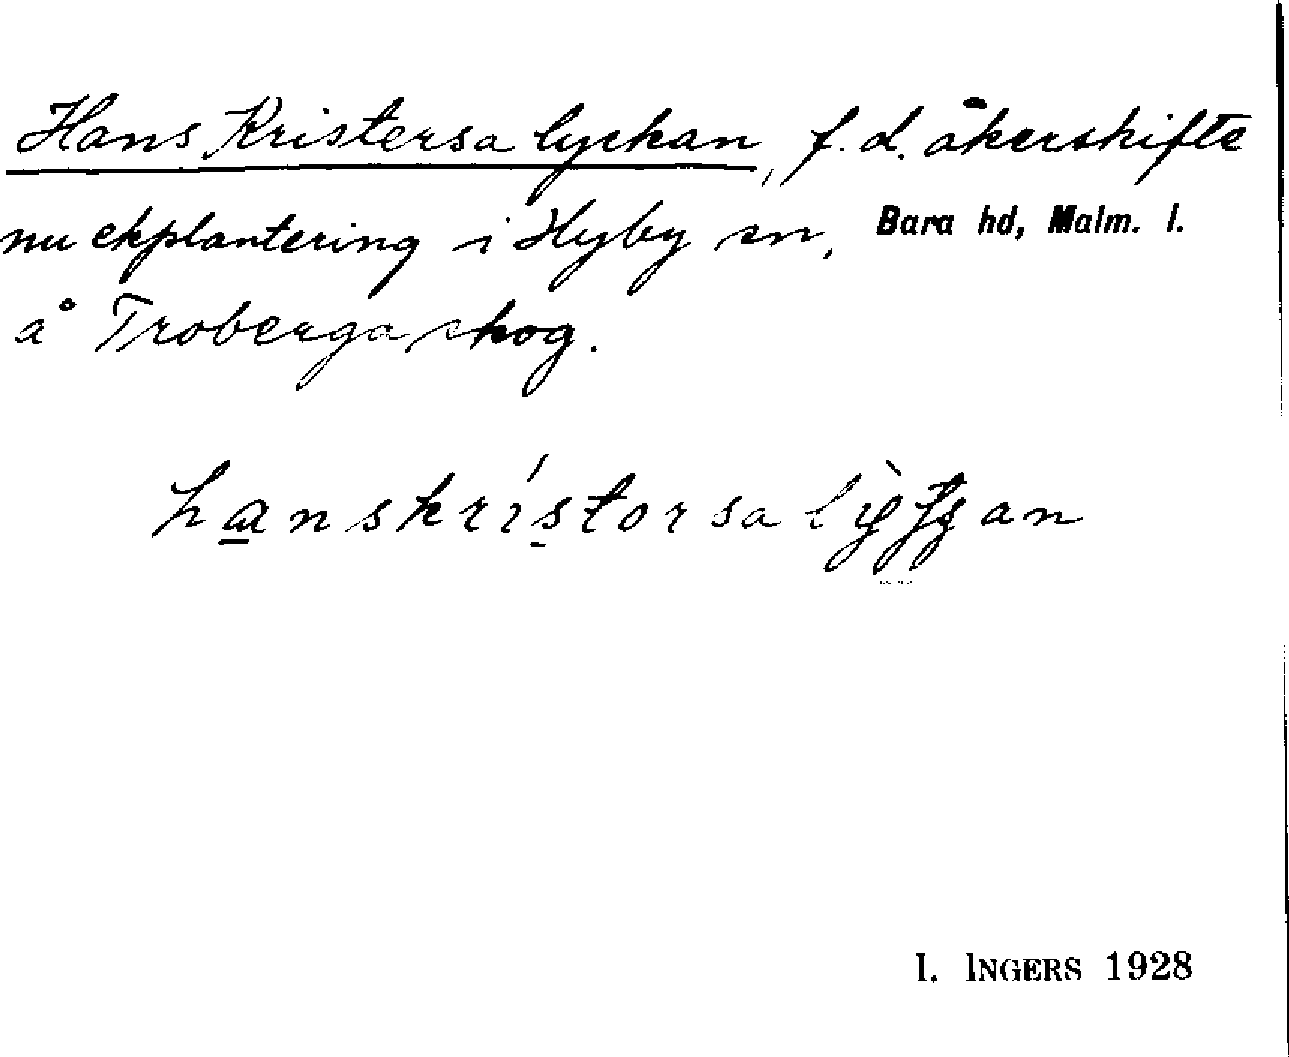 Hans Kristersa lyckan, f. d. åkerskifte
nu ekplantering i Hyby sn, Bara hd, Malm. l.
å Troberga skog.
I. INGERS 1928